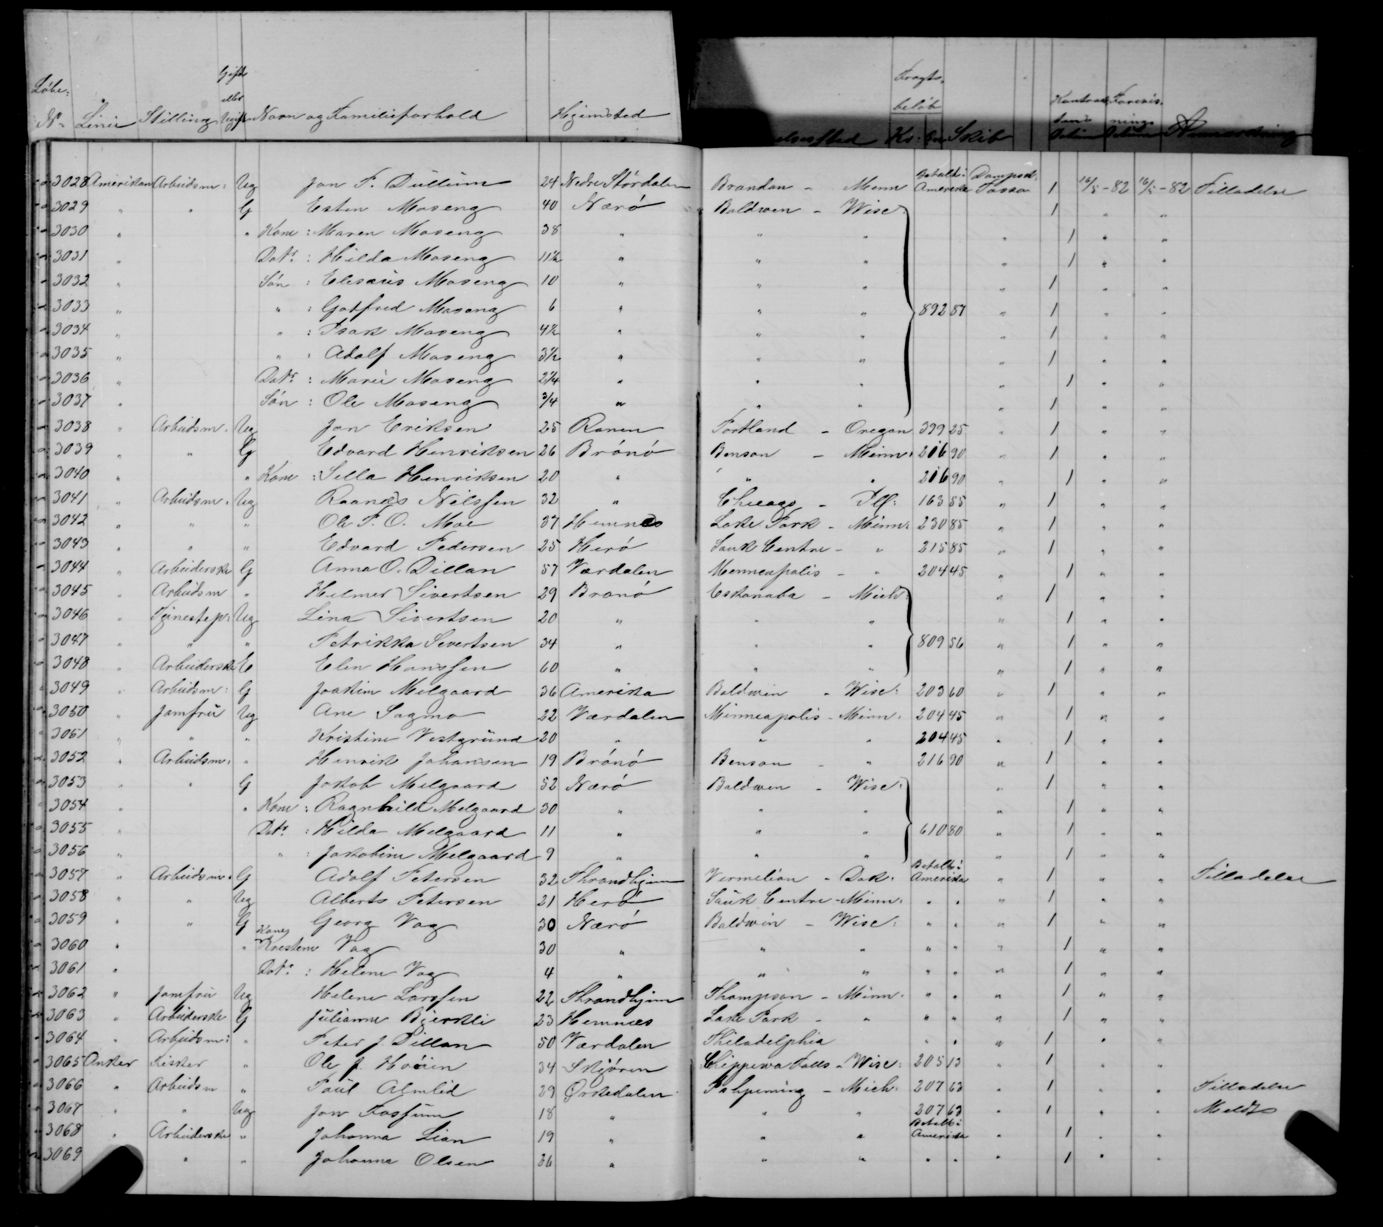 Løbe- Gift Fragt-
eller beløb Kontrak- Forevis-
No Linie Stilling Ugift Navn og Familieforhold Hjemsted elsessted Kr. Skib Anmærkning
3028 Amerikan Arbeidsm: Ug Jon F. Dullum 24 Nedre Stördalen Brandon - Minn Betalt i Amerika Dampsk. Tasso 1 16/5-82 16/5-82 Tilladelse
3029 " " G Esten Moseng 40 Nærö Baldwen - Wisc: " 1 " "
3030 " " Kone : Maren Moseng 38 " " " " 1 " "
3031 " Datr : Hilda Moseng 11½ " " " " 1 " "
3032 " Søn : Elisæus Moseng 10 " " " " 1 " "
3033 " " : Gotfred Moseng 6 " " " 892 57 " 1 " "
3034 " " : Isak Moseng 4½ " " " " 1 " "
3035 " " : Adolf Moseng 3½ " " " " 1 " "
3036 " Datr : Marie Moseng 2¼ " " " " 1 " "
3037 " Søn : Ole Moseng ¾ " " " " 1 " "
3038 " Arbeidsm. Ug Jon Eriksen 25 Ranen Portland - Oregon 399 25 " 1 " "
3039 " " G Edvard Henriksen 26 Brönö Benson - Minn: 216 90 " 1 " "
3040 " " Kone : Sella Henriksen 20 " " " 216 90 " 1 " "
3041 " Arbeidsm. Ug Raanæs Nilssen 32 " Chicago - Ill: 163 55 " 1 " "
3042 " " " Ole P. O. Moe 37 Hemnes Lake Park - Minn: 230 85 " 1 " "
3043 " " " Edvard Pedersen 25 Herö Sauk Centre - " 215 85 " 1 " "
3044 " Arbeiderske G Anna O. Dillan 57 Værdalen Menneapolis - " 204 45 " 1 " "
3045 " Arbeidsm " Hilmer Sivertsen 29 Brönö Eskanaba - Mich: " 1 " "
3046 " Tjenestep: Ug Lina Sivertsen 20 " " " " 1 " "
3047 " " " Petrikka Severtsen 34 " " " 809 56 " 1 " "
3048 " Arbeiderske E Elen Hanssen 60 " " " " 1 " "
3049 " Arbeidsm: G Joakim Melgaard 36 Amerika Baldwin - Wisc: 203 60 " 1 " "
3050 " Jomfru Ug Ane Sagmo 22 Værdalen Minneapolis - Minn: 204 45 " 1 " "
3051 " " " Kristine Vestgrund 20 " " " 204 45 " 1 " "
3052 " Arbeidsm: " Henrik Johansen 19 Brönö Benson - " 216 90 " 1 " "
3053 " " G Jakob Melgaard 52 Nærö Baldwen - Wisc: " 1 " "
3054 " " Kone : Ragnhild Melgaard 30 " " " " 1 " "
3055 " Datr : Hilda Melgaard 11 " " " 610 80 " 1 " "
3056 " " : Jakobine Melgaard 9 " " " " 1 " "
3057 " Arbeidsm. G Adolf Petersen 32 Throndhjem Vermilian - Dak: Betalt i Amerika " 1 " " Tilladelse
3058 " " Ug Alberts Petersen 21 Herö Sauk Centre - Minn: " " " 1 " "
3059 " " G Georg Vog 30 Nærö Baldwin - Wisc: " " " 1 " "
3060 " " Kone Krestene Vog 30 " " " " " " 1 " "
3061 " Datr : Helene Vog 4 " " " " " " 1 " "
3062 " Jomfru Ug Helene Larssen 22 Throndhjem Thompson - Minn. " " " 1 " "
3063 " Arbeiderske G Julianne Bjerkli 23 Hemnæs Lake Park - " " " " 1 " "
3064 " Arbeidsm: " Peter J. Dillan 50 Værdalen Philadelphia " " " 1 " "
3065 Anker " Ole J. 34 Chippewa Falls - Wisc: 205 13 " 1 " "
3066 " Arbeidsm " Paul Almlid 29 Ørkedalen Ishpeming - Mich: 207 63 " 1 " " Tilladelse
3067 " " Ug Jon Fossum 18 " " " 207 63 " 1 " " Meldt
3068 " Arbeiderske " Johanna Lian 19 " " " Betalt i Amerika " 1 " "
3069 " " Johanna Olsen 36 " " " " " " 1 " "